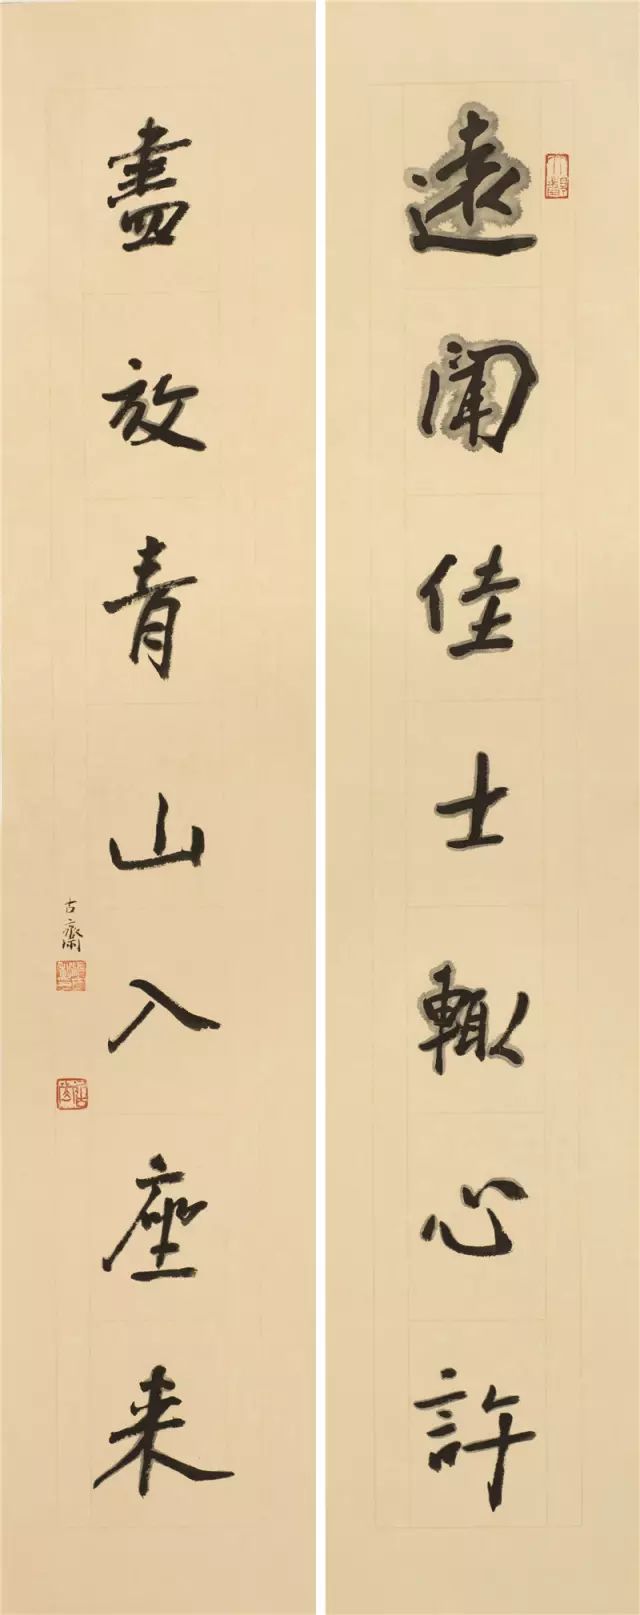 遠聞佳士輒心許
盡放青山入座来
古齋